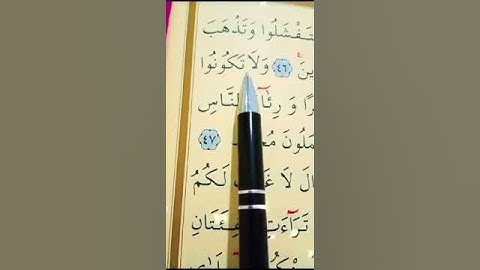 تَفْشَلُوا وَتَذْهَبَ
ينَ ٤٦ وَلَا تَكُونُوا
رًا وَ رِئَآ النَّاسِ
مَلُونَ مُح ٤٧
الَ لَا غَا لَكُمُ
تَرَآءَتِ الْفِئَتَانِ